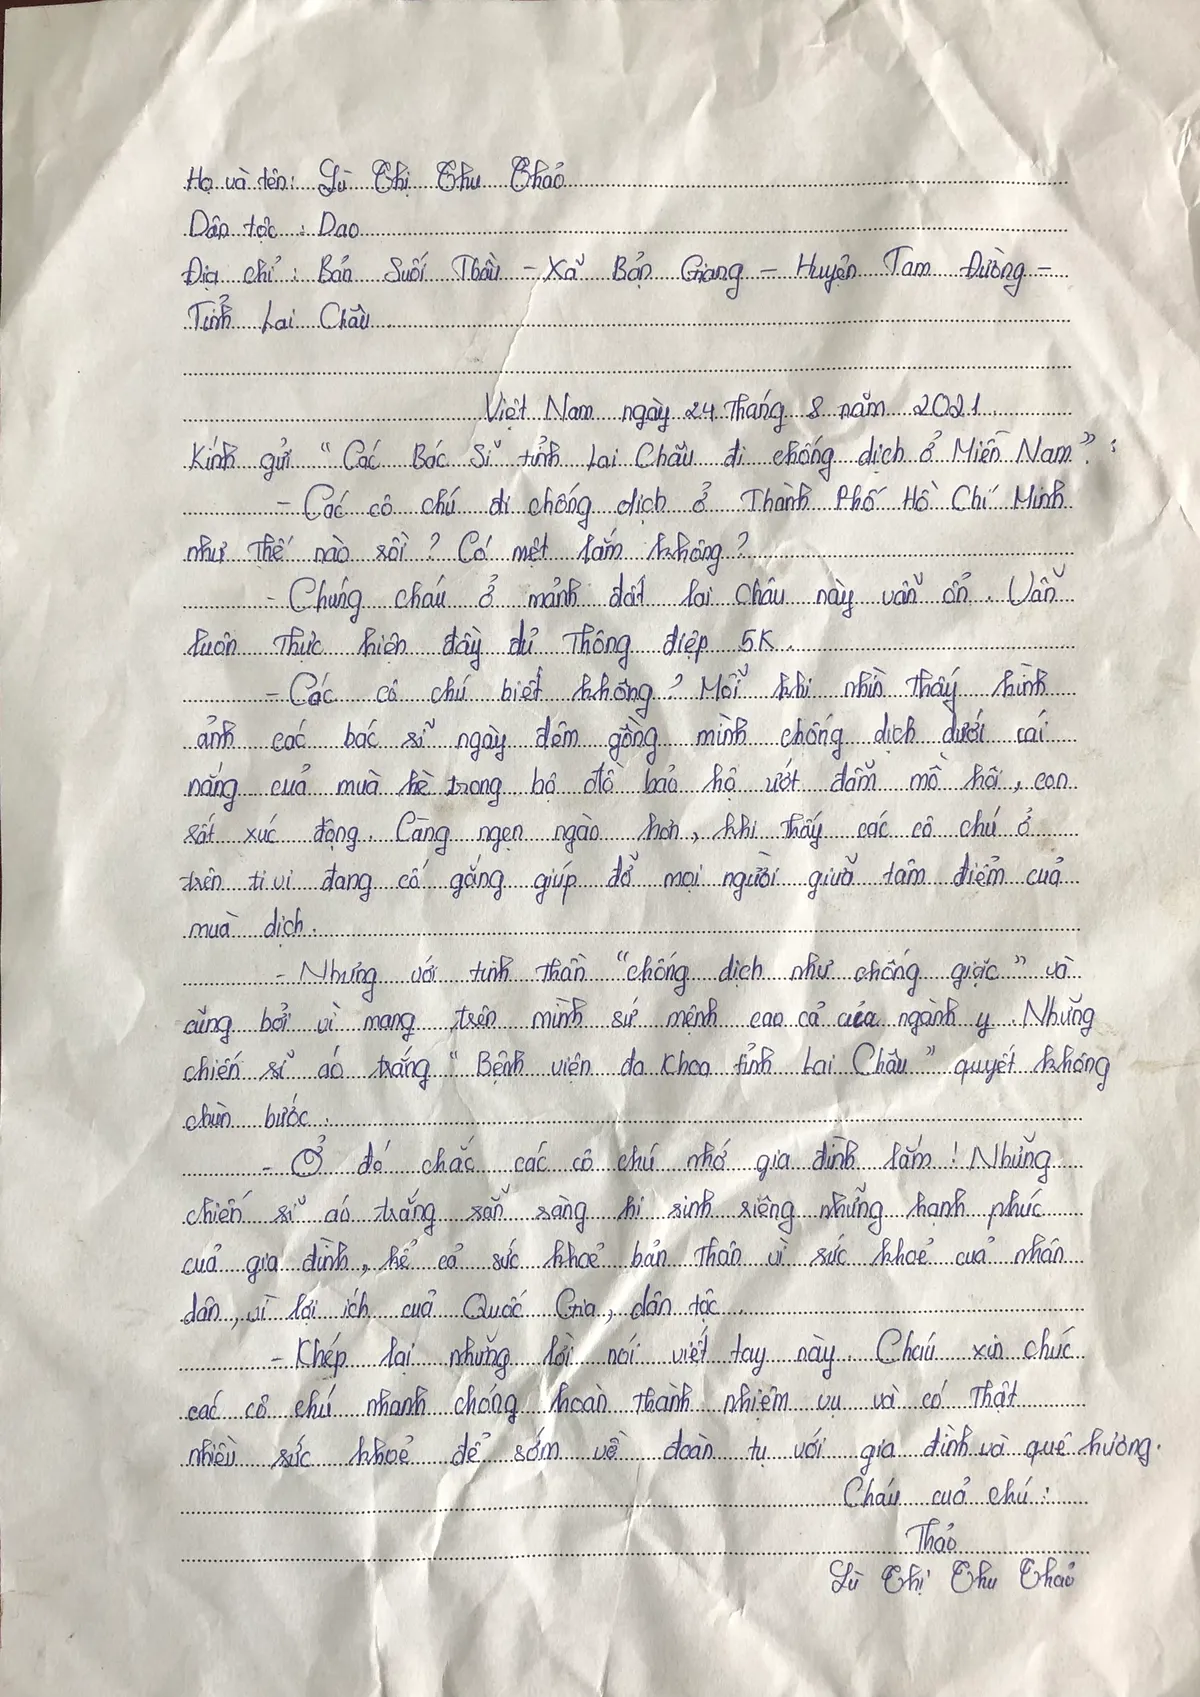 Họ và tên: Lù Thị Thu Thảo
Dân tộc : Dao
Địa chỉ : Bản Suối Thầu - Xã Bản Giang - Huyện Tam Đường -
Tỉnh Lai Châu
Việt Nam ngày 24 tháng 8 năm 2021
Kính gửi "Các Bác Sĩ tỉnh Lai Châu đi chống dịch ở Miền Nam" :
- Các cô chú đi chống dịch ở Thành Phố Hồ Chí Minh
như thế nào rồi ? Có mệt lắm không ?
- Chúng cháu ở mảnh đất lai Châu này vẫn ổn. Vẫn
luôn thực hiện đầy đủ thông điệp 5K.
- Các cô chú biết không ? Mỗi khi nhìn thấy hình
ảnh các bác sĩ ngày đêm gồng mình chống dịch dưới cái
nắng của mùa hè trong bộ đồ bảo hộ ướt đẫm mồ hôi, con
rất xúc động. Càng nghẹn ngào hơn, khi thấy các cô chú ở
trên ti vi đang cố gắng giúp đỡ mọi người giữa tâm điểm của
mùa dịch.
- Nhưng với tinh thần "chống dịch như chống giặc" và
cũng bởi vì mang trên mình sứ mệnh cao cả của ngành y. Những
chiến sĩ áo trắng "Bệnh viện đa khoa tỉnh Lai Châu" quyết không
chùn bước.
- Ở đó chắc các cô chú nhớ gia đình lắm ! Những
chiến sĩ áo trắng sẵn sàng hi sinh riêng những hạnh phúc
của gia đình, kể cả sức khoẻ bản thân vì sức khoẻ của nhân
dân, vì lợi ích của Quốc Gia, dân tộc
- Khép lại những lời nói viết tay này. Cháu xin chúc
các cô chú nhanh chóng hoàn thành nhiệm vụ và có thật
nhiều sức khoẻ để sớm về đoàn tụ với gia đình và quê hương.
Cháu của chú :
Thảo
Lù Thị Thu Thảo